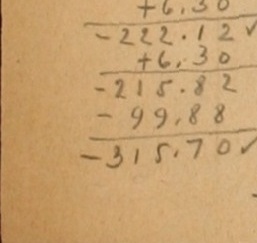 +6.30
-222.12✓
+6.30
-215.82
-99.88
-315.70✓